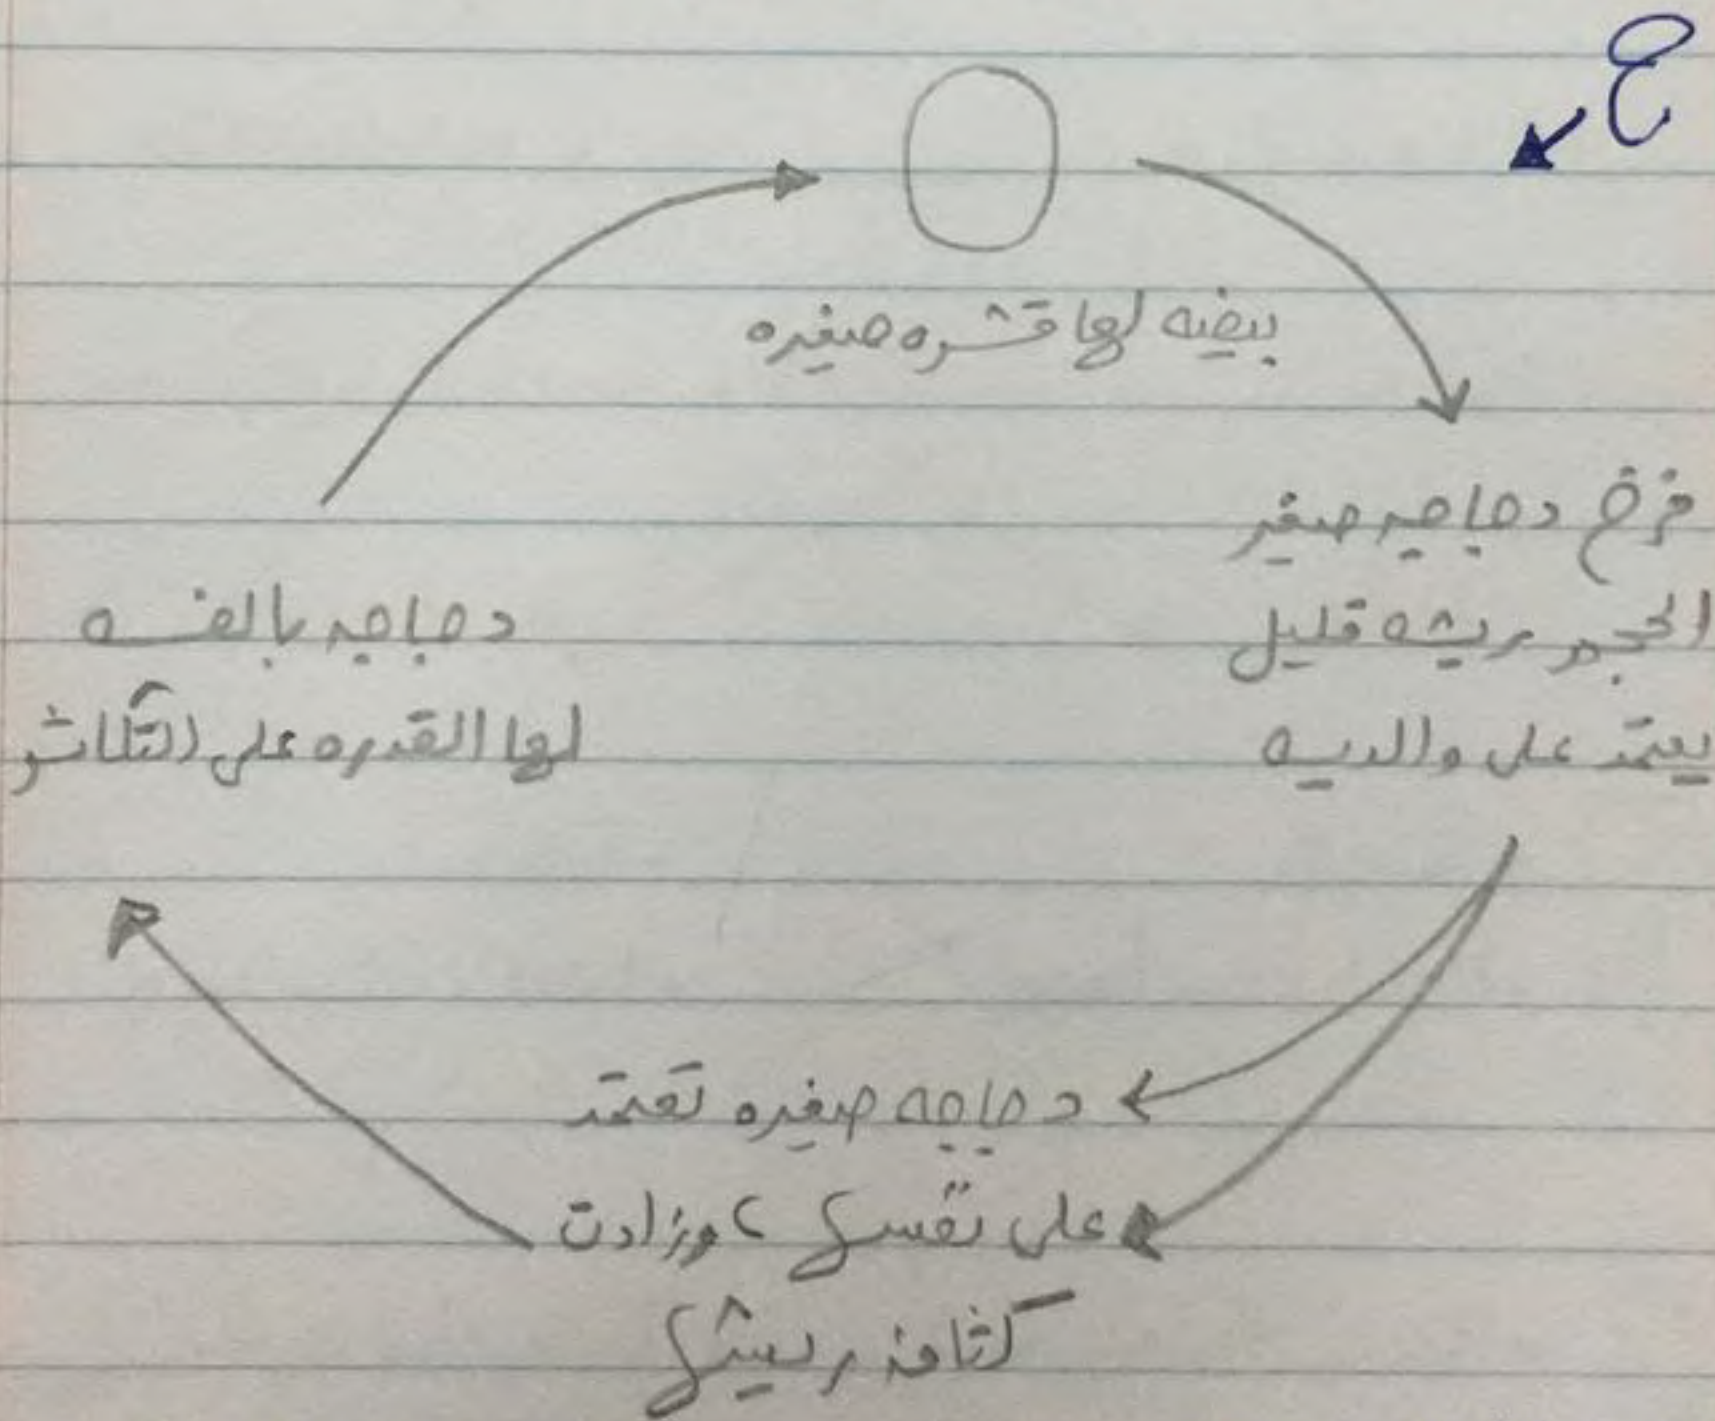 ج
بيضه لها قشره صغيره
فرخ دجاجه صغير
الحجم ريشه قليل
يعتمد على والديه
دجاجه صغيره تعتمد
على نفسها، وزادت
كثافة ريشها
دجاجه بالغه
لها القدره على التكاثر